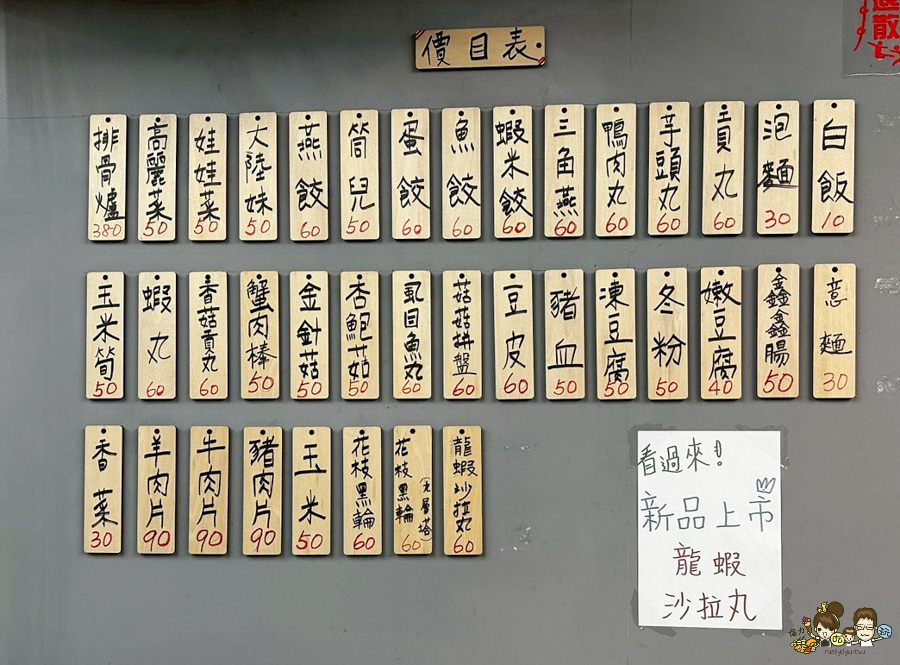 價目表
排骨爐 380
高麗菜 50
娃娃菜 50
大陸妹 50
燕餃 60
筒兒 50
蛋餃 60
魚餃 60
蝦米餃 60
三角燕 60
鴨肉丸 60
芋頭丸 60
貢丸 60
泡麵 30
白飯 10
玉米筍 50
蝦丸 60
香菇貢丸 60
蟹肉棒 50
金針菇 50
杏鮑菇 50
虱目魚丸 60
菇菇拼盤 60
豆皮 60
豬血 50
凍豆腐 50
冬粉 50
嫩豆腐 40
鑫鑫腸 50
意麵 30
香菜 30
羊肉片 90
牛肉片 90
豬肉片 90
玉米 50
花枝黑輪 60
花枝黑輪(九層塔) 60
龍蝦沙拉丸 60
看過來!
新品上市
龍蝦
沙拉丸